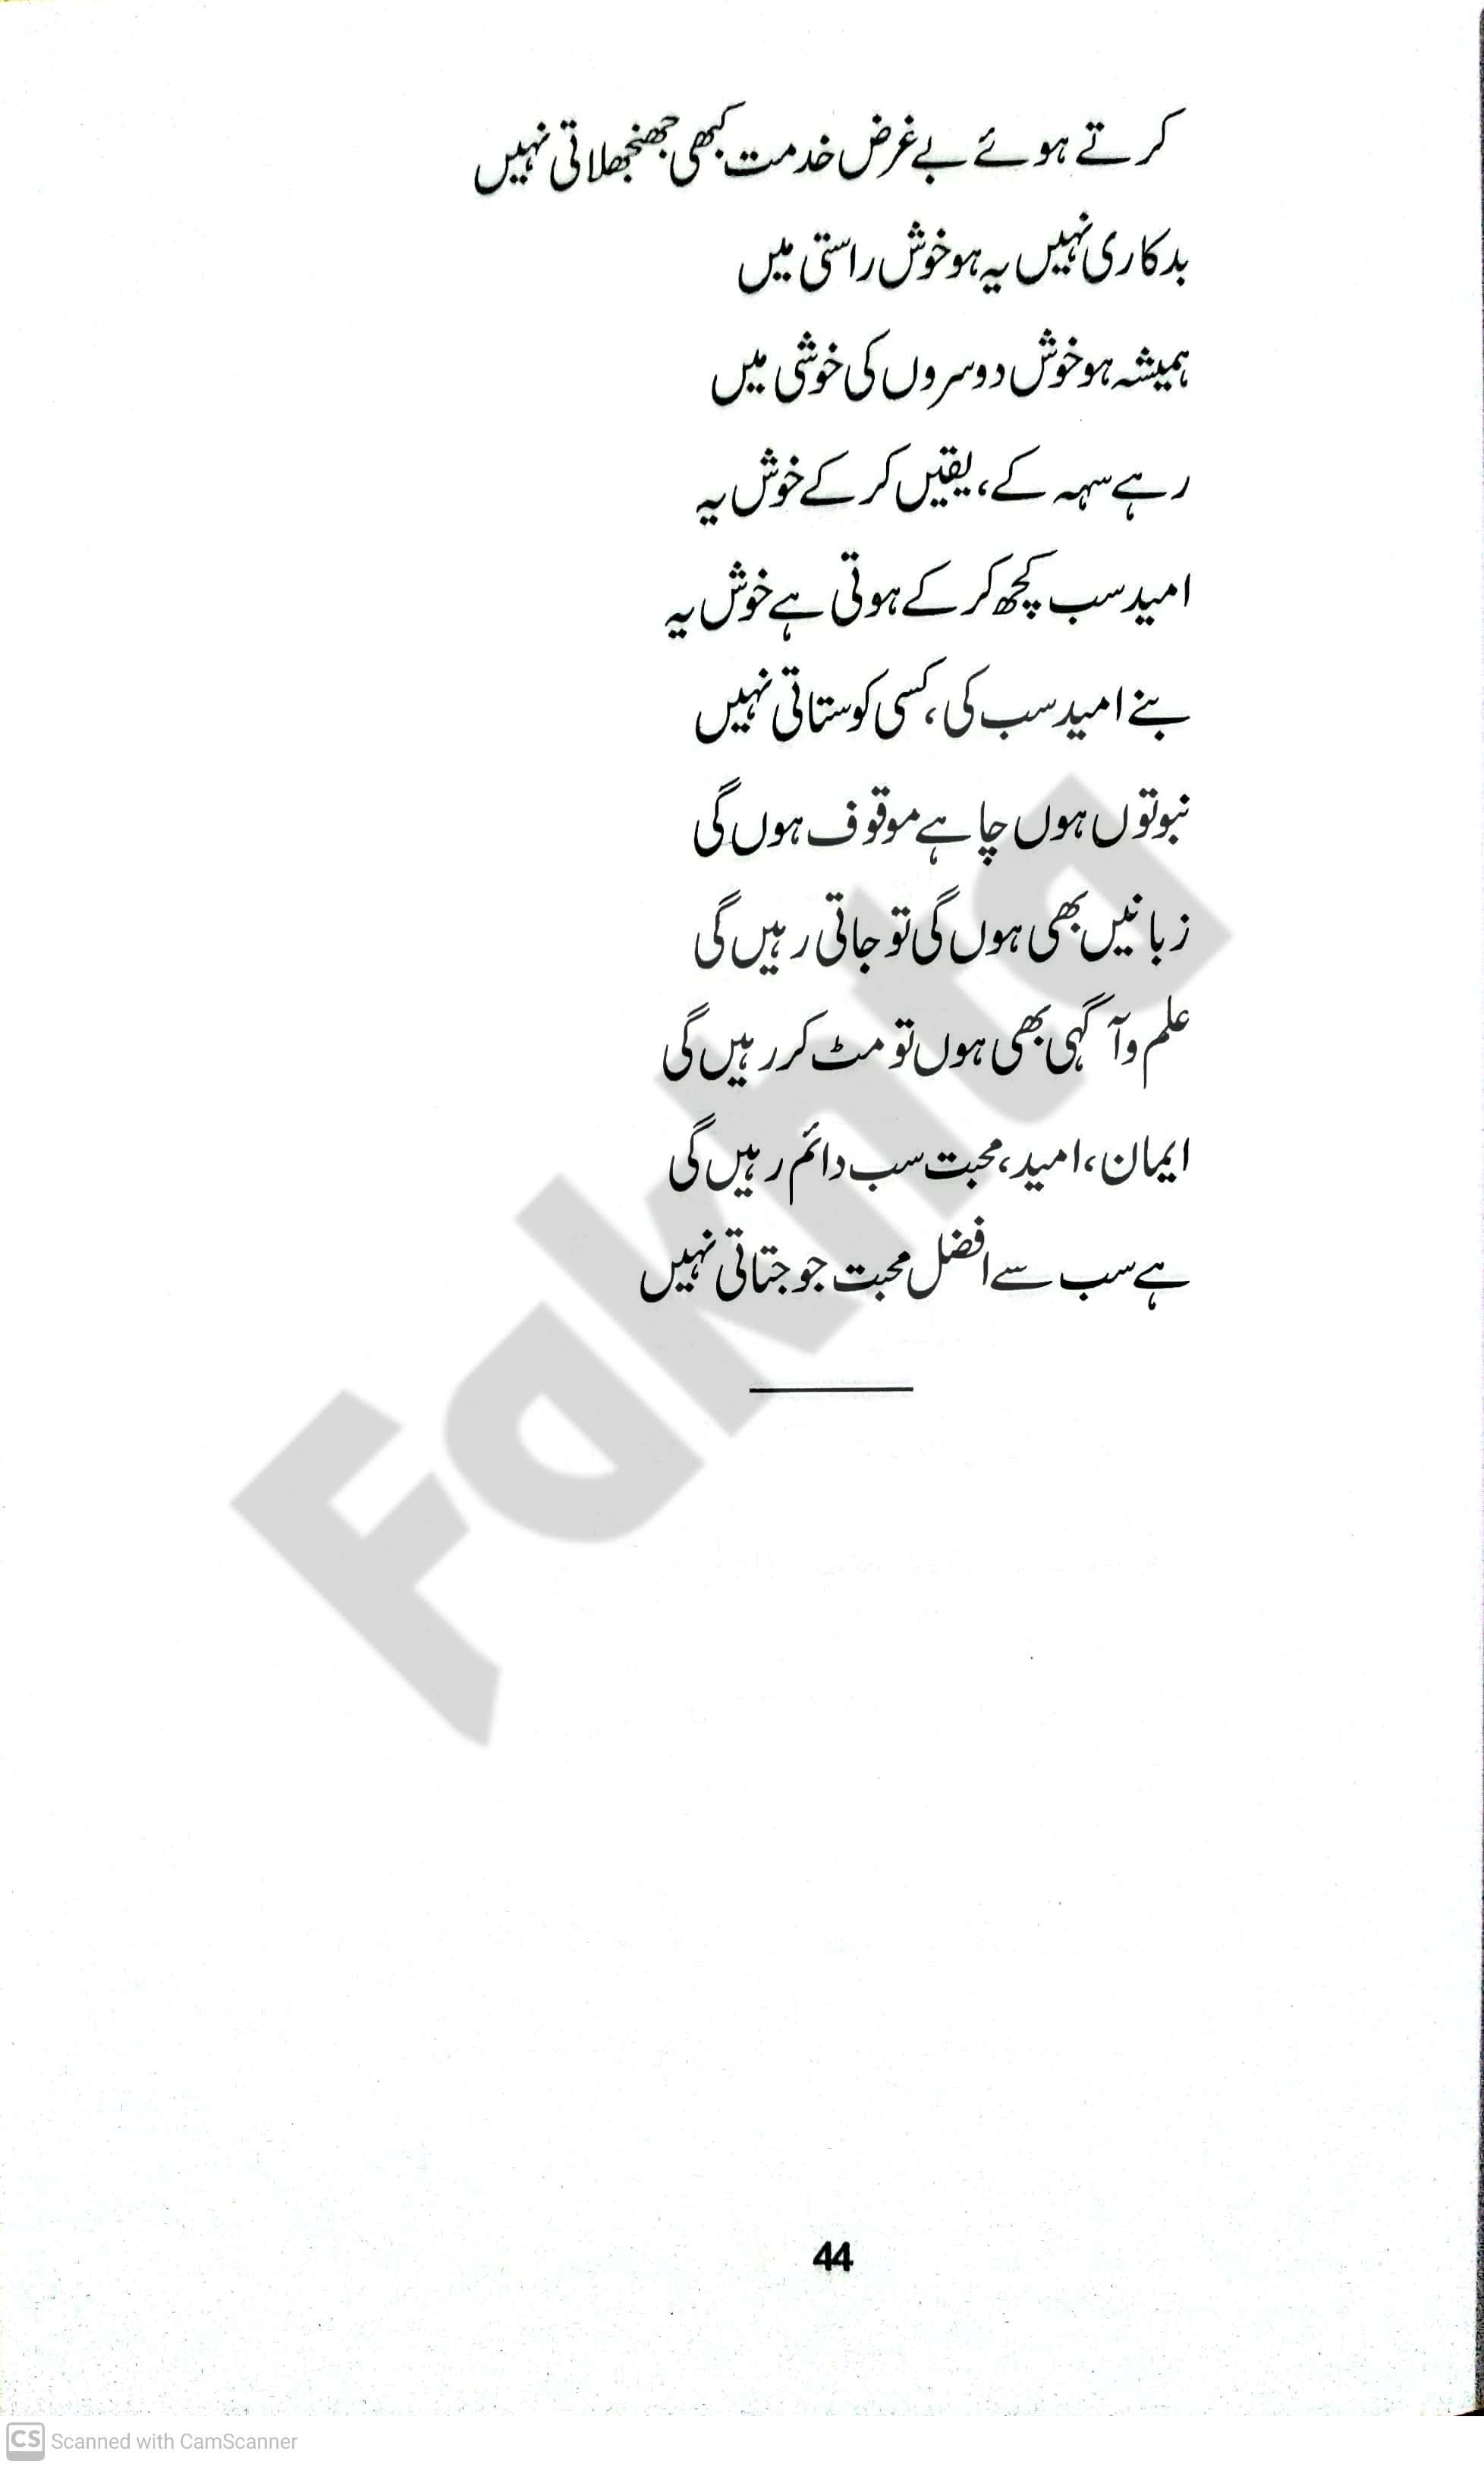 کرتے ہوئے بے غرض خدمت کبھی جھنجھلاتی نہیں
بدکاری نہیں یہ ہو خوش راستی میں
ہمیشہ ہو خوش دوسروں کی خوشی میں
رہے سہہ کے، یقیں کر کے خوش یہ
امید سب کچھ کر کے ہوتی ہے خوش یہ
بنے امید سب کی، کسی کو ستاتی نہیں
نبوتوں ہوں چاہے موقوف ہوں گی
زبانیں بھی ہوں گی تو جاتی رہیں گی
علم و آگہی بھی ہوں تو مٹ کر رہیں گی
ایمان، امید، محبت سب دائم رہیں گی
ہے سب سے افضل محبت جو جتاتی نہیں
Fakhta
44
CS Scanned with CamScanner